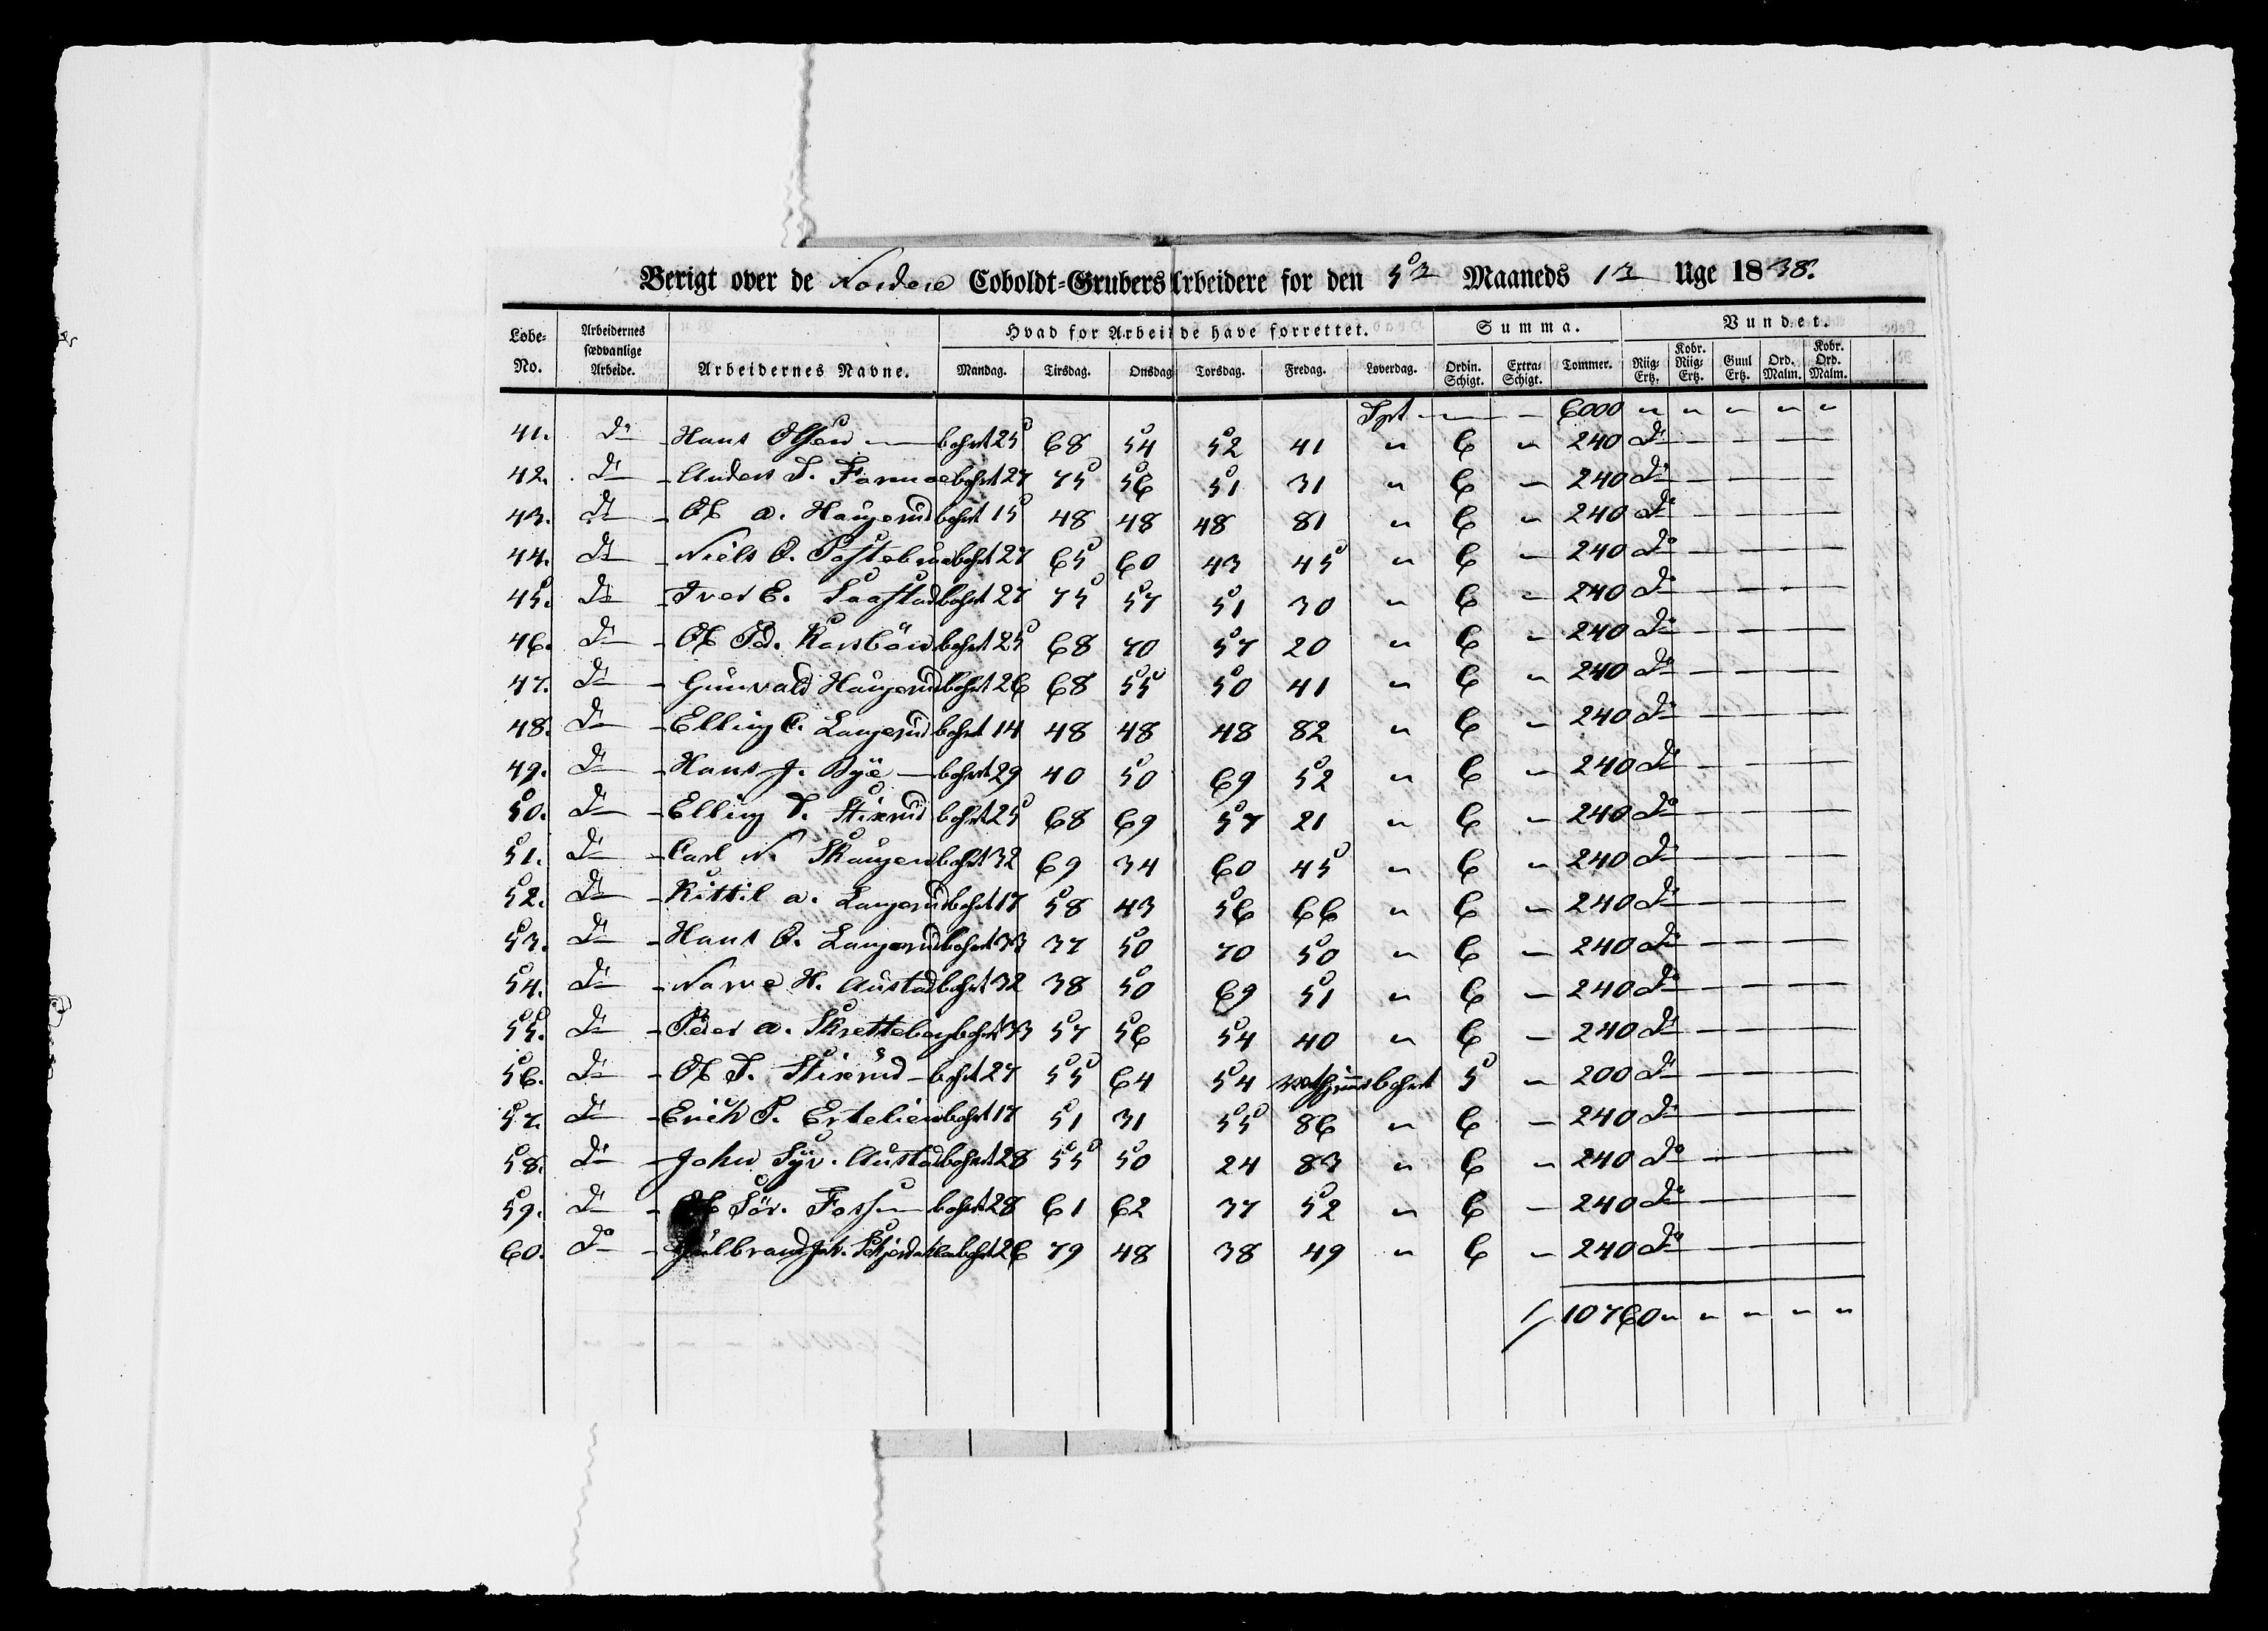 Berigt over de Nordere Coboldt-Grubers Arbeidere for den 5te Maaneds 1te Uge 1838.
Løbe-No. Arbeidernes sædvanlige Arbeide. Arbeidernes Navne. Hvad for Arbeide have forrettet. Summa. Vundet.
Mandag. Tirsdag. Onsdag Torsdag. Fredag. Løverdag. Ordin. Schigt. Extra- Schigt. Tommer. Riig- Ertz. Kobr. Riig- Ertz. Guul Ertz. Ord. Malm. Kobr. Ord. Malm.
Tpt — — 6000 " " " " "
41. Do — Hans Olsen — bohrt 25 68 54 52 41 " 6 " 240 Do — — — —
42. Do — Anders T. Formoe bohrt 27 75 56 51 31 " 6 — 240 Do — — — —
43. Do — Ole A. Haugerud bohrt 15 48 48 48 81 " 6 " 240 Do — — — —
44. Do — Niels O. bohrt 27 65 60 43 45 " 6 — 240 Do — — — —
45. Do — Iver E. Saastad bohrt 27 75 57 51 30 " 6 — 240 Do — — — —
46. Do — Ole Pd. Korsbøen bohrt 25 68 70 57 20 " 6 — 240 Do — — — —
47. Do — Gunvald Haugerud bohrt 26 68 55 50 41 " 6 " 240 Do — — — —
48. Do — Elling C. Langerud bohrt 14 48 48 48 82 " 6 — 240 Do — — — —
49. Do — Hans J. Bye — bohrt 29 40 50 69 52 " 6 — 240 Do — — — —
50. Do — Elling T. Stixrud bohrt 25 68 69 57 21 " 6 — 240 Do — — — —
51. Do — Carl N. Skaugen bohrt 32 69 34 60 45 " 6 — 240 Do — — — —
52. Do — Kittil A. Langerud bohrt 17 58 43 56 66 " 6 — 240 Do — — — —
53. Do — Hans O. Langerud bohrt 33 37 50 70 50 " 6 — 240 Do — — — —
54. Do — Narve H. Austad bohrt 32 38 50 69 51 " 6 — 240 Do — — — —
55. Do — Peder A. Skretteberg bohrt 33 57 56 54 40 " 6 — 240 Do — — — —
56. Do — Ole T. Stixrud — bohrt 27 55 64 54 bohrt 5 " 200 Do — — — —
57. Do — Erich P. Ertelien bohrt 17 51 31 55 86 " 6 — 240 Do — — — —
58. Do — John Syv. Austad bohrt 28 55 50 24 83 " 6 " 240 Do — — — —
59. Do — Ole Sör. Fossum bohrt 28 61 62 37 52 " 6 — 240 Do — — — —
60. Do — Gulbrand Joh. bohrt 26 79 48 38 49 " 6 — 240 Do — — — —
10760 " " " " "